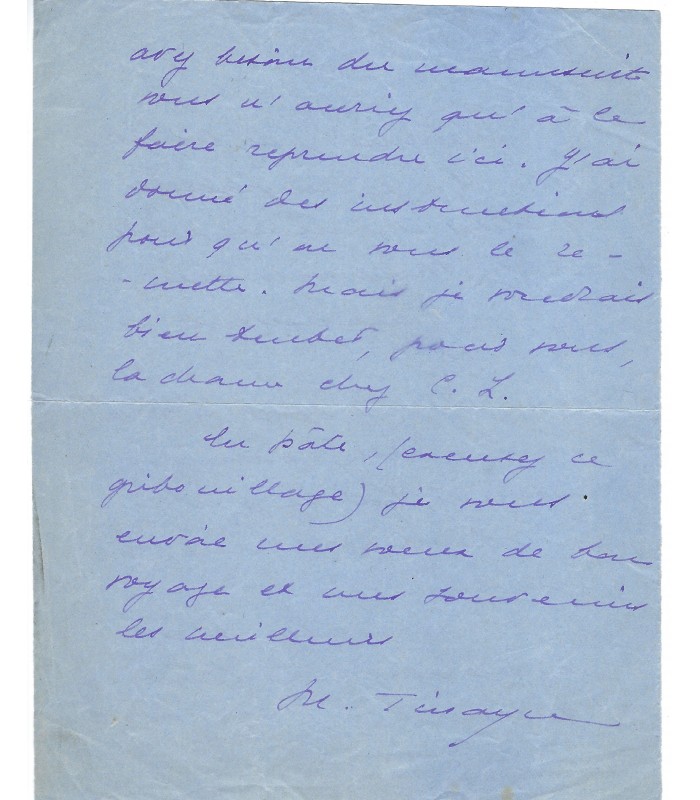 avez besoin du manuscrit
vous n'auriez qu'à le
faire reprendre ici. J'ai
donné des instructions
pour qu'on vous le re-
-mette. Mais je voudrais
bien tenter, pour vous,
la chance chez C. L.
En hâte, (excusez ce
gribouillage) je vous
envoie mes vœux de bon
voyage et mes souvenirs
les meilleurs
M. Tinayre